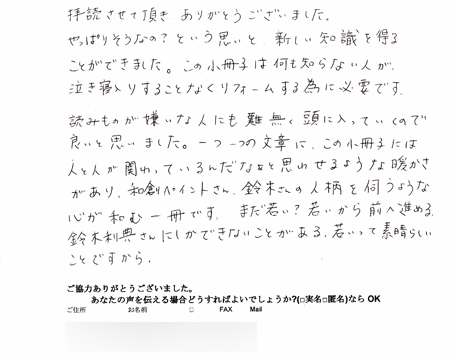 拝読させて頂き ありがとうございました。
やっぱりそうなの？という思いと、新しい知識を得る
ことができました。この小冊子は何も知らない人が、
泣き寝入りすることなくリフォームする為に必要です。
読みものが嫌いな人にも難無く頭に入っていくので
良いと思いました。一つ一つの文章に、この小冊子には
人と人が関わっているんだなぁと思わせるような暖かさ
があり、和創ペイントさん、鈴木さんの人柄を伺うような
心が和む一冊です。まだ若い？若いから前へ進める。
鈴木利典さんにしかできないことがある。若いって素晴らしい
ことですから。
ご協力ありがとうございました。
あなたの声を伝える場合どうすればよいでしょうか?(□実名□匿名)なら OK
ご住所 お名前 □ FAX Mail